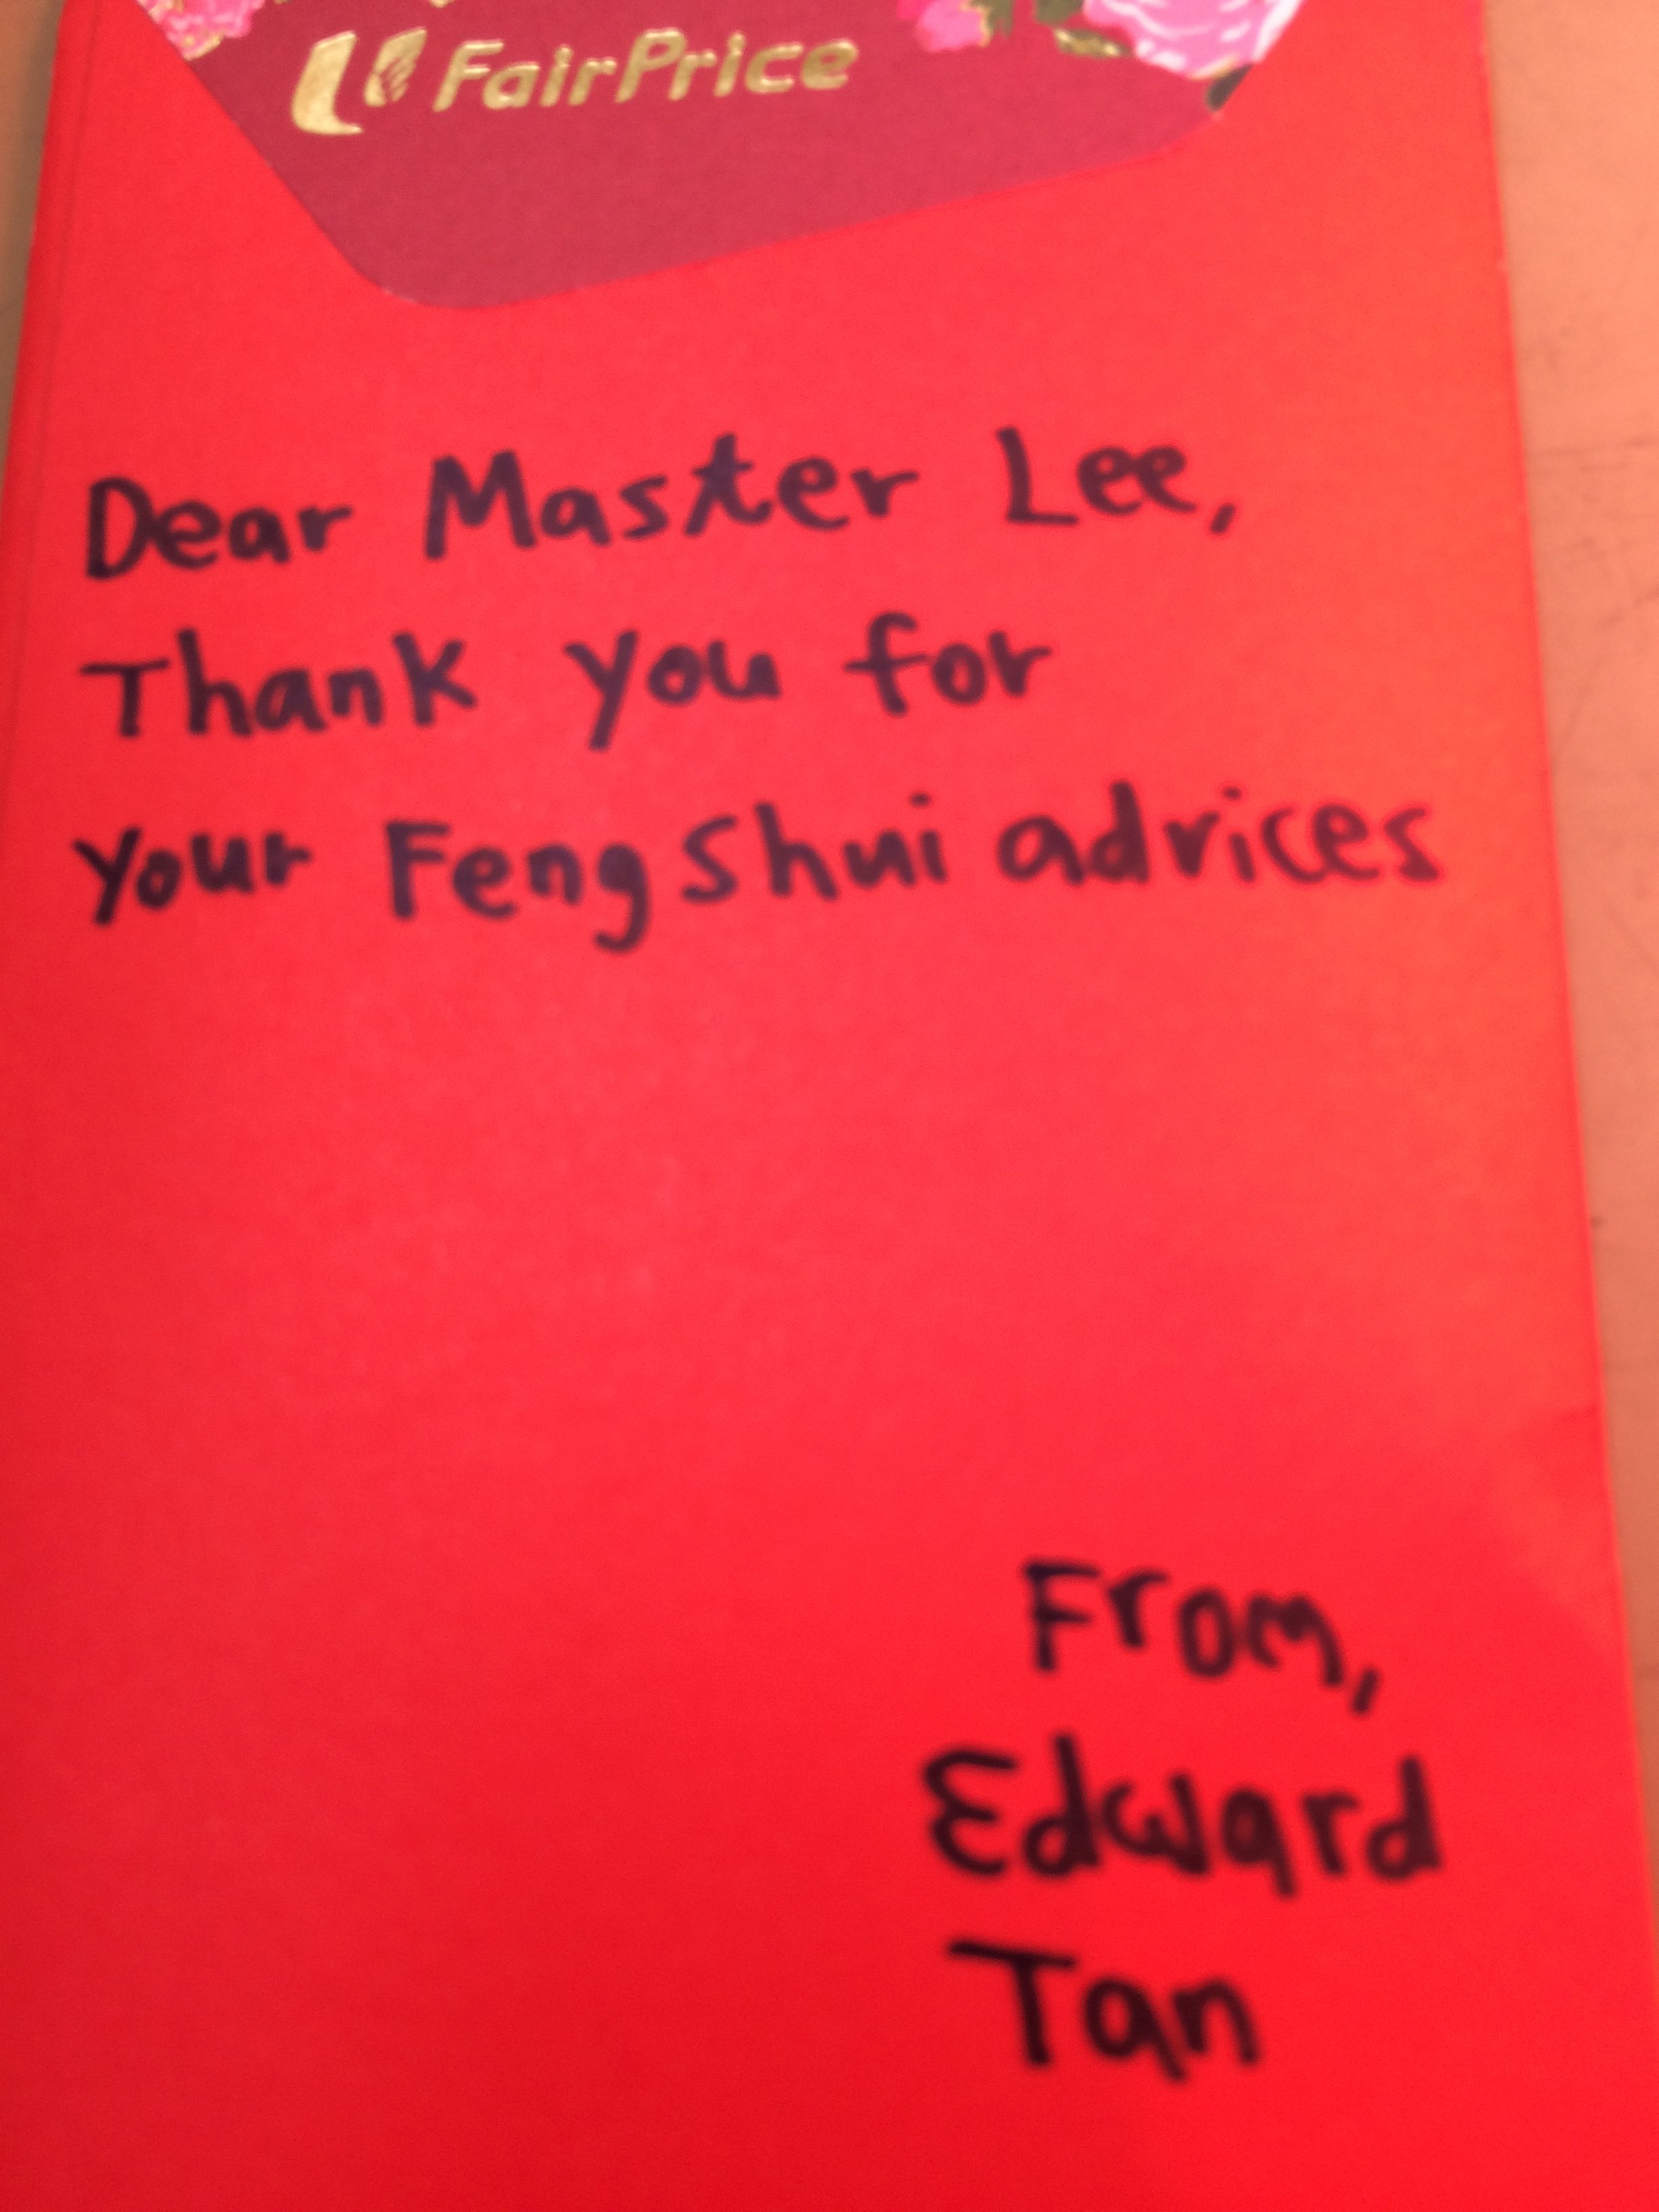 FairPrice
Dear Master Lee,
Thank you for
your Feng Shui advices
From,
Edward
Tan